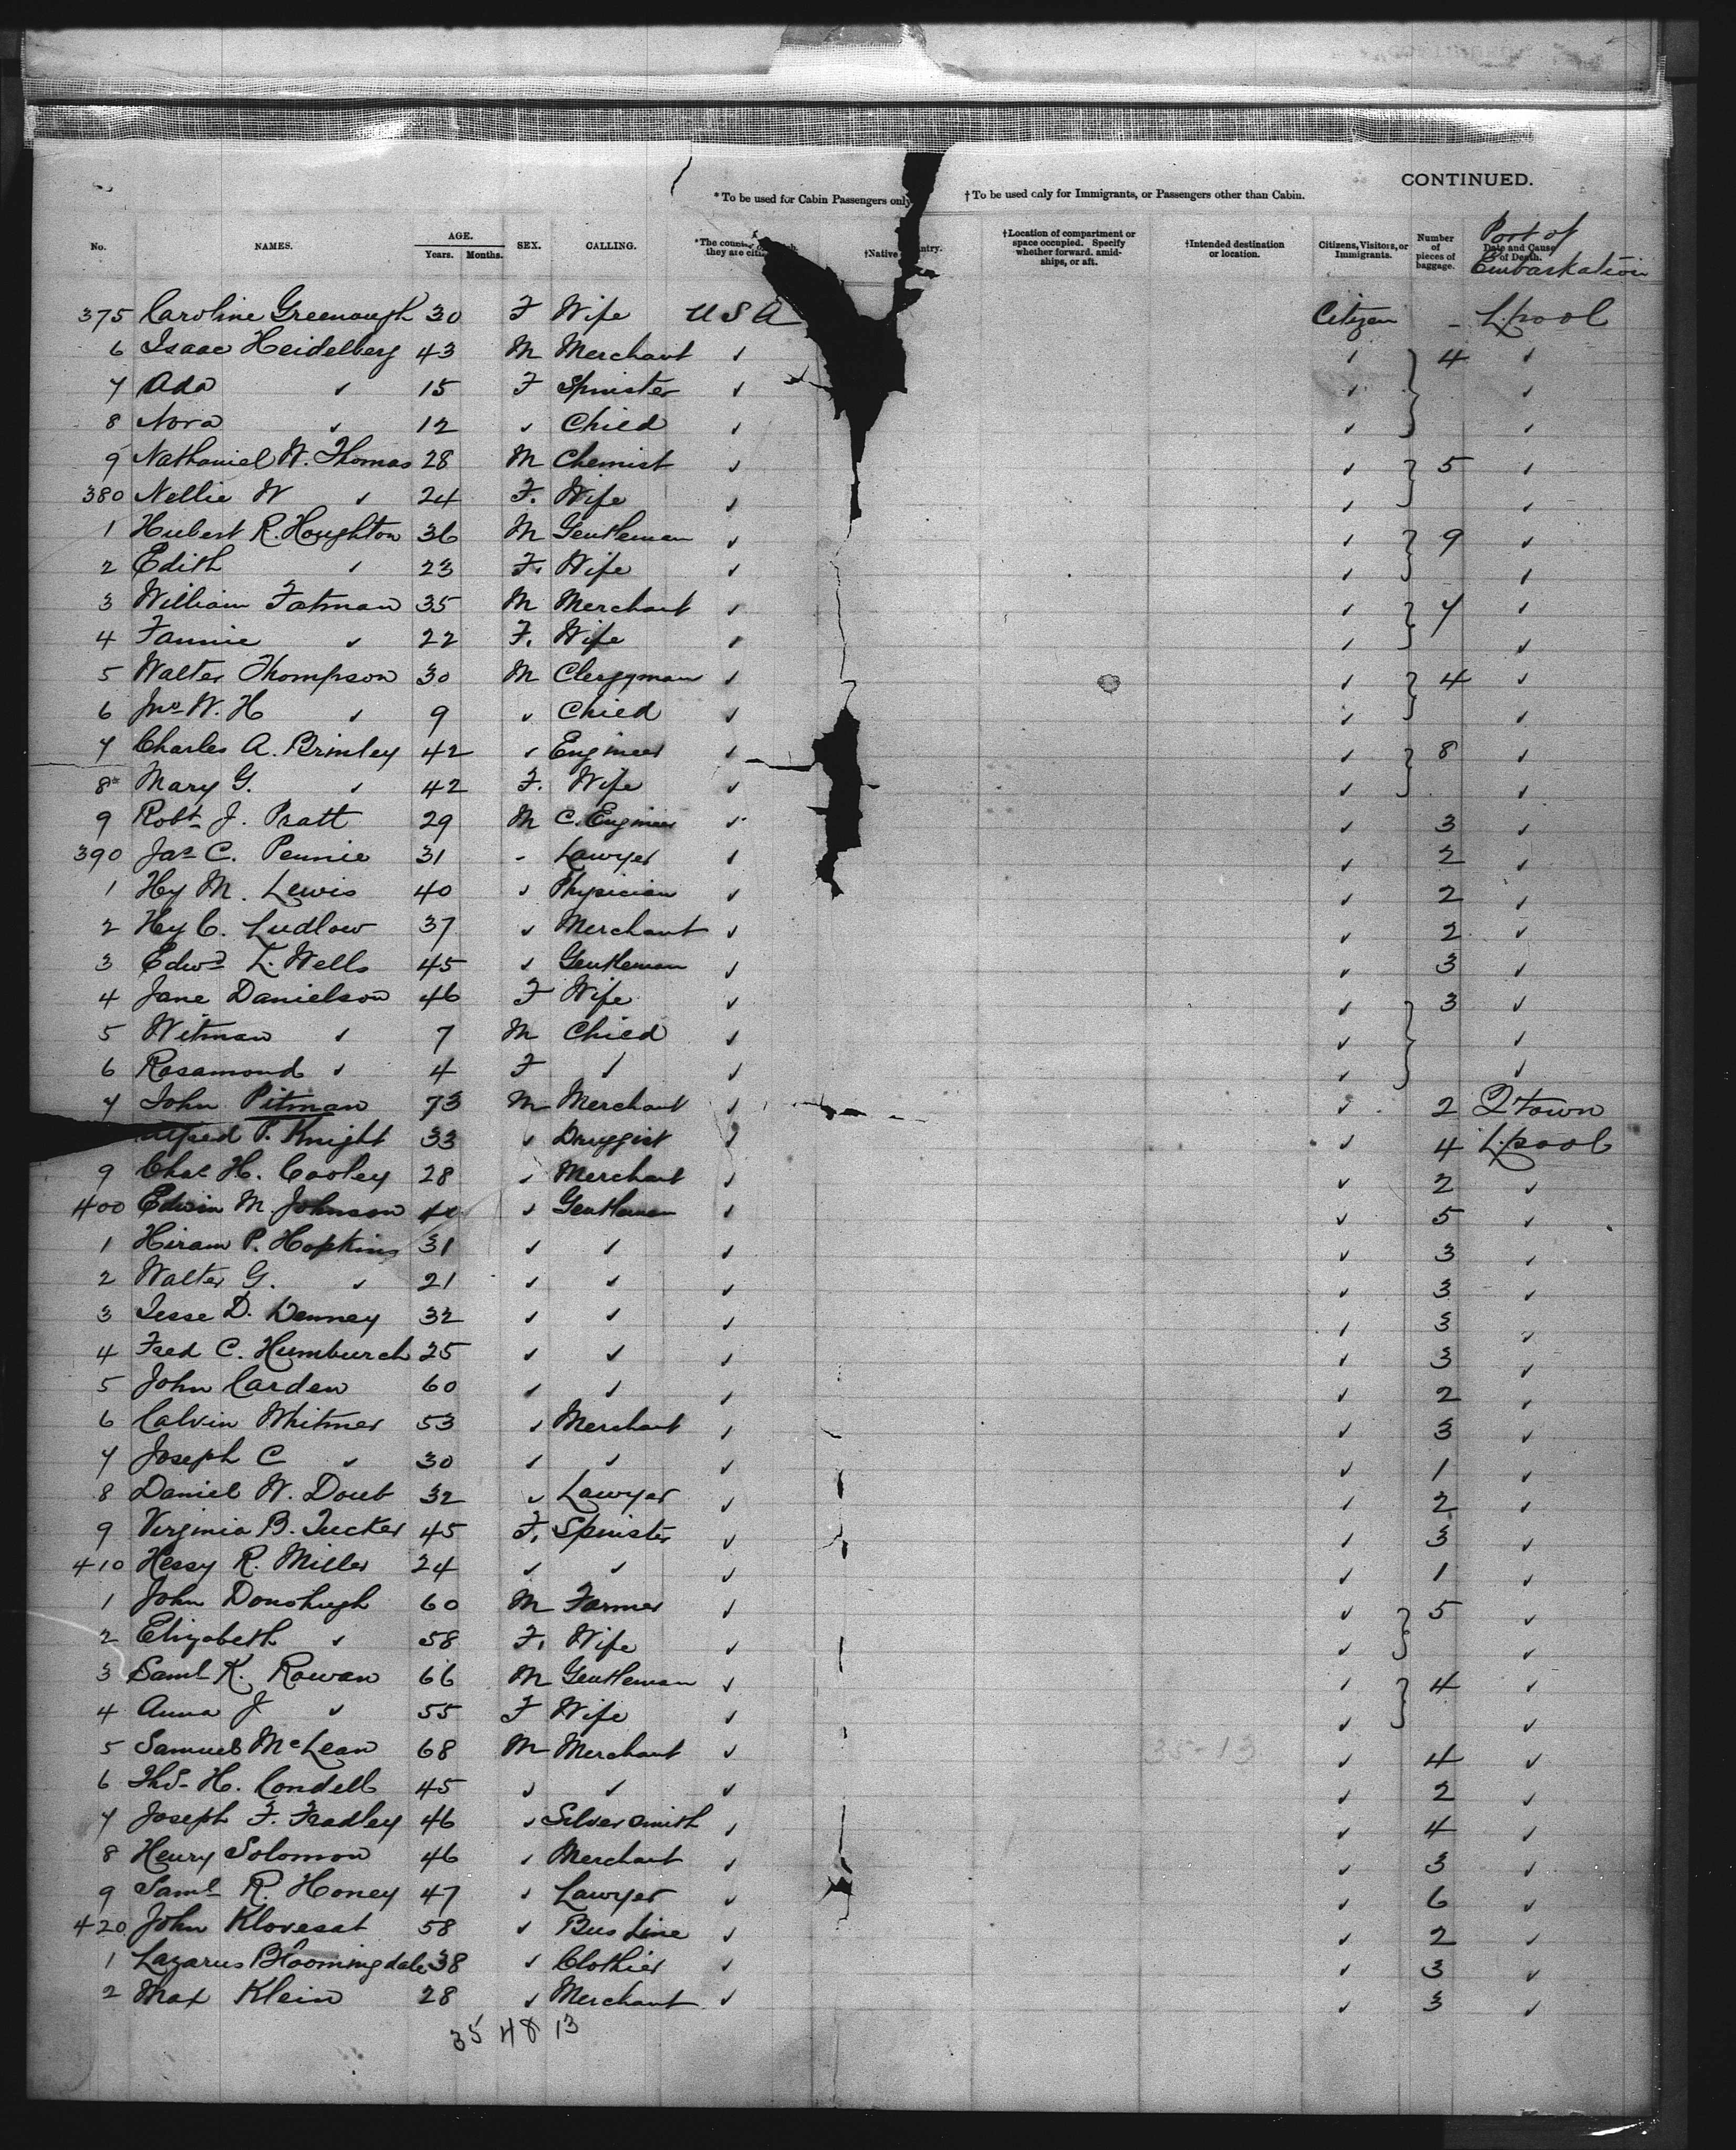 CONTINUED.
* To be used for Cabin Passengers only † To be used only for Immigrants, or Passengers other than Cabin.
No. NAMES. AGE. Years. Months. SEX. CALLING. *The they are †Native †Location of compartment or space occupied. Specify whether forward, amidships, or aft. †Intended destination or location. Citizens, Visitors, or Immigrants. Number of pieces of baggage. Date and Cause of Death. Port of Embarkation
375 Caroline Greenough 30 F Wife U S A Citizen - L.pool
6 Isaac Heidelberg 43 M Merchant ✓ ✓ 4 ✓
7 Ada ✓ 15 F Spinister ✓ ✓ ✓
8 Nora ✓ 12 ✓ Child ✓ ✓ ✓
9 Nathaniel W. Thomas 28 M Chemist ✓ ✓ 5 ✓
380 Nellie W ✓ 24 F. Wife ✓ ✓ ✓
1 Hubert R. Houghton 36 M Gentleman ✓ ✓ 9 ✓
2 Edith ✓ 23 F. Wife ✓ ✓ ✓
3 William Fatman 35 M Merchant ✓ ✓ 7 ✓
4 Fannie ✓ 22 F. Wife ✓ ✓ ✓
5 Walter Thompson 30 M Clergyman ✓ ✓ 4 ✓
6 Jno W. H ✓ 9 ✓ Child ✓ ✓ ✓
7 Charles A. Brinley 42 ✓ Engineer ✓ ✓ 8 ✓
8 Mary G. ✓ 42 F. Wife ✓ ✓ ✓
9 Robt J. Pratt 29 M C. Engineer ✓ ✓ 3 ✓
390 Jas C. Pennie 31 - Lawyer ✓ ✓ 2 ✓
1 Hy M. Lewis 40 ✓ Physician ✓ ✓ 2 ✓
2 Hy C. Ludlow 37 ✓ Merchant ✓ ✓ 2 ✓
3 Edwd L. Wells 45 ✓ Gentleman ✓ ✓ 3 ✓
4 Jane Danielson 46 F Wife ✓ ✓ 3 ✓
5 Witman ✓ 7 M Child ✓ ✓ ✓
6 Rosamond ✓ 4 F ✓ ✓ ✓ ✓
7 John Pitman 73 M Merchant ✓ ✓ 2 Q'town
Alfred P. Knight 33 ✓ Druggist ✓ ✓ 4 L.pool
9 Chas H. Cooley 28 ✓ Merchant ✓ ✓ 2 ✓
400 Edwin M. Johnson ✓ Gentleman ✓ ✓ 5 ✓
1 Hiram P. Hopkins 31 ✓ ✓ ✓ ✓ 3 ✓
2 Walter G. ✓ 21 ✓ ✓ ✓ ✓ 3 ✓
3 Jesse D. Denney 32 ✓ ✓ ✓ ✓ 3 ✓
4 Fred C. Humburch 25 ✓ ✓ ✓ ✓ 3 ✓
5 John Carden 60 ✓ ✓ ✓ ✓ 2 ✓
6 Calvin Whitmer 53 ✓ Merchant ✓ ✓ 3 ✓
7 Joseph C ✓ 30 ✓ ✓ ✓ ✓ 1 ✓
8 Daniel W. Doub 32 ✓ Lawyer ✓ ✓ 2 ✓
9 Virginia B. Tucker 45 F. Spinister ✓ ✓ 3 ✓
410 Hessy R. Miller 24 ✓ ✓ ✓ ✓ 1 ✓
1 John Donohugh 60 M Farmer ✓ ✓ 5 ✓
2 Elizabeth ✓ 58 F. Wife ✓ ✓ ✓
3 Saml K. Rowan 66 M Gentleman ✓ ✓ 4 ✓
4 Anna J ✓ 55 F Wife ✓ ✓ ✓
5 Samuel McLean 68 M Merchant ✓ 35-13 ✓ 4 ✓
6 Thos H. Condell 45 ✓ ✓ ✓ ✓ 2 ✓
7 Joseph F. Fradley 46 ✓ Silversmith ✓ ✓ 4 ✓
8 Henry Solomon 46 ✓ Merchant ✓ ✓ 3 ✓
9 Saml R. Honey 47 ✓ Lawyer ✓ ✓ 6 ✓
420 John Klovesat 58 ✓ Bus Line ✓ ✓ 2 ✓
1 Lazarus Bloomingdale 38 ✓ Clothier ✓ ✓ 3 ✓
2 Max Klein 28 ✓ Merchant ✓ ✓ 3 ✓
35 48 13